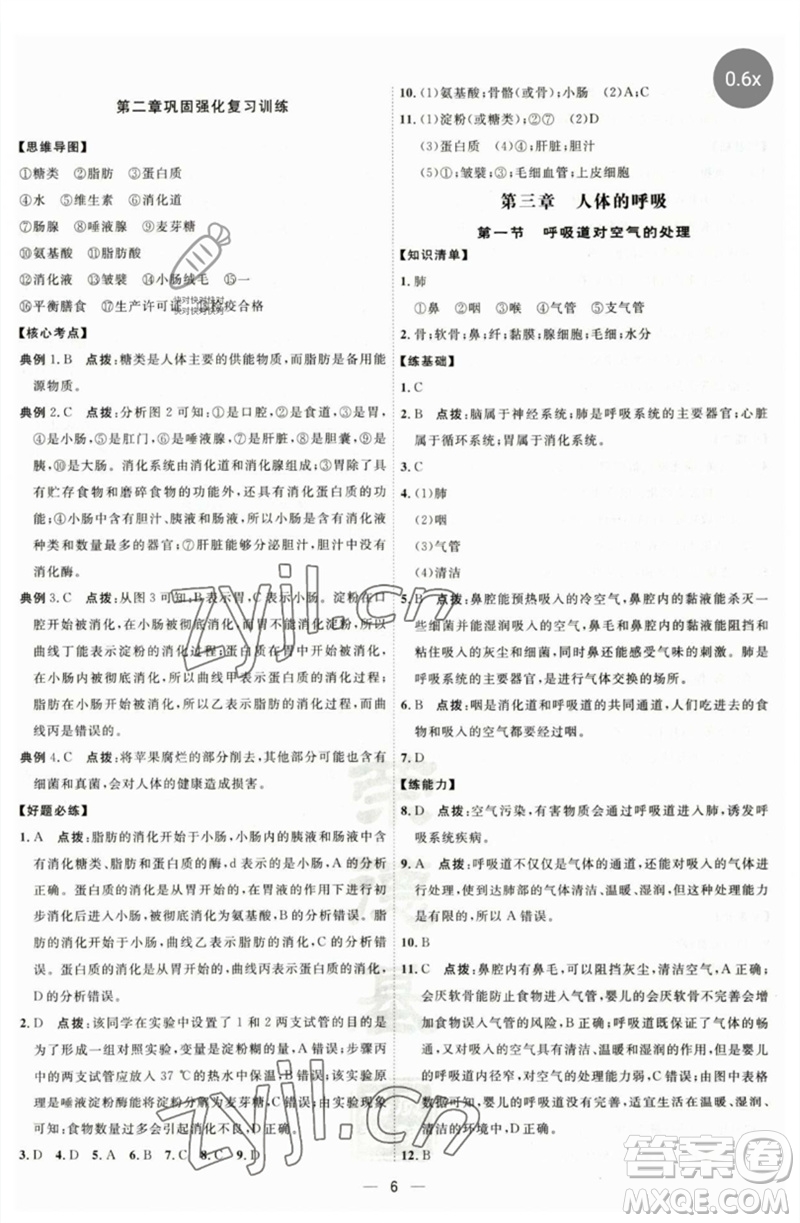 0.6x
第二章巩固强化复习训练
【思维导图】
①糖类 ②脂肪 ③蛋白质
④水 ⑤维生素 ⑥消化道
⑦肠腺 ⑧唾液腺 ⑨麦芽糖
⑩氨基酸 ⑪脂肪酸
⑫消化液 ⑬皱襞 ⑭小肠绒毛 ⑮一
⑯平衡膳食 ⑰生产许可证 ⑱检疫合格
快对快对快对
快对快对快对
【核心考点】
典例 1. B 点拨：糖类是人体主要的供能物质，而脂肪是备用能
源物质。
典例 2. C 点拨：分析图 2 可知：①是口腔，②是食道，③是胃，
④是小肠，⑤是肛门，⑥是唾液腺，⑦是肝脏，⑧是胆囊，⑨是
胰，⑩是大肠。消化系统由消化道和消化腺组成；③胃除具
有贮存食物和磨碎食物的功能外，还具有消化蛋白质的功
能；④小肠中含有胆汁、胰液和肠液，所以小肠是含消化液
种类和数量最多的器官；⑦肝脏能分泌胆汁，胆汁中不含有
消化酶。
典例 3. C 点拨：从图 3 可知，甲、乙、丁曲线正确。淀粉在口
腔开始被消化，然后在小肠内被彻底消化为葡萄糖，所以
曲线丁能表示淀粉的消化过程；蛋白质在胃内开始被消化，
在小肠内被彻底消化，所以曲线甲表示蛋白质的消化过程；
脂肪在小肠内被消化，所以曲线乙表示脂肪的消化过程；
曲线丙是错误的。
典例 4. C 点拨：将苹果腐烂的部分削去，其中还会含有大量
细菌和真菌，会对人体的健康造成损害。
【好题必练】
1. A 点拨：脂肪的消化开始于小肠，小肠中的胰液和肠液都
含有消化糖类、脂肪和蛋白质的酶，d 表示的是小肠，A 的分析
正确。维生素不经过消化就能直接被吸收，B 的分析错误。
蛋白质的消化是从胃开始的，在胃液的作用下进行初步消
化后进入小肠，被彻底消化为氨基酸，C 的分析错误。脂
肪的消化开始于小肠，曲线乙表示脂肪的消化，曲线甲表示
蛋白质的消化。蛋白质的消化是从胃开始的，不是从口腔，
D 的分析错误。
2. D 点拨：该同学在实验中设置了 1 和 2 两支试管的目的是
形成对照实验，变量是淀粉糊的量，A 错误；步骤丙
中的两支试管应放入 37 ℃的热水中保温；B 错误；该实验原
理是唾液淀粉酶将淀粉分解为麦芽糖，C 错误；由实验现象
可知，食物数量过多会引起消化不良，D 正确。
3. D 4. D 5. A 6. D 7. B 8. C 9. D
10. (1)氨基酸；骨骼(或骨)；小肠 (2)A；C
11. (1)淀粉(或糖类)；②⑦ (2)D
(3)蛋白质 (4)④；肝脏；胆汁
(5)①；皱襞；③；毛细血管；上皮细胞
第三章 人体的呼吸
第一节 呼吸道对空气的处理
【知识清单】
1. 肺
①鼻 ②咽 ③喉 ④气管 ⑤支气管
2. 骨；软骨；鼻；纤；黏膜；腺细胞；毛细；水分
【练基础】
1. C
2. C 点拨：脑属于神经系统；肺是呼吸系统的主要器官；心脏
属于循环系统；胃属于消化系统。
3. C
4. (1)肺
(2)咽
(3)气管
(4)清洁
5. B 点拨：鼻腔能预热吸入的冷空气，鼻腔内的黏液能杀灭一
些细菌并能湿润吸入的空气。鼻毛和鼻黏膜黏液能阻挡和
粘住吸入的灰尘和细菌。同时鼻还能感受气味的刺激。肺是
呼吸系统的主要器官，是进行气体交换的场所。
6. B 点拨：咽是消化道和呼吸道的共同通道，人们吃进去的食
物和吸入的空气都要经过咽。
7. D
【练能力】
8. D 点拨：空气污染，有害气体和粉尘等会吸入肺，诱发呼
吸系统疾病。
9. A 点拨：呼吸道不仅仅是气体的通道，还能对吸入的气体
进行处理，使到达肺部的气体清洁、温暖、湿润，但这种处理能力
是有限的，所以 A 错误。
10. B
11. C 点拨：鼻腔内有鼻毛，可以阻挡灰尘，清洁空气，A 正确；
会厌软骨能防止食物进入气管，婴儿的会厌软骨尚未发育成熟，
食物误入气管的风险，B 正确；软骨支架保证了气体的畅
通，空气会变得清洁、温暖、湿润，C 错误；婴儿的气管比成
年人的气管短，D 正确。
12. B
zyjl.cn
zyjl.cn
荣德基
答案圈
6